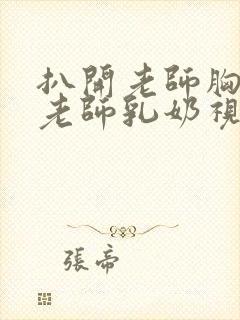 扒開老師胸
老師乳奶視
張帝